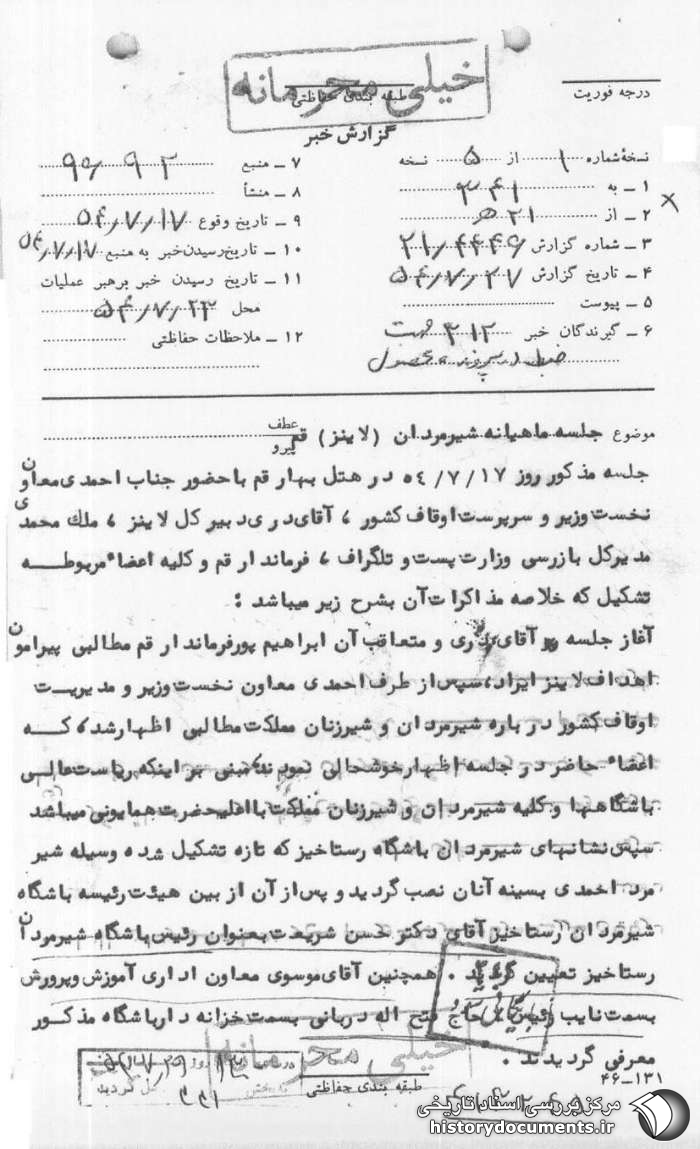 خیلی محرمانه
درجه فوریت
طبقه بندی حفاظتی
گزارش خبر
نسخهٔ شماره ۱ از ۵ نسخه
۱ – به ۳۴۱
۲ – از ۲۱ ه
۳ – شماره گزارش ۲۱/۴۴۴۶
۴ – تاریخ گزارش ۵۴/۷/۲۷
۵ – پیوست
۶ – گیرندگان خبر ۳۱۲ جهت
ضبط در پرونده محصول
۷ – منبع ۹۵۰۹۲
۸ – منشأ
۹ – تاریخ وقوع ۵۴/۷/۱۷
۱۰ – تاریخ رسیدن خبر به منبع ۵۴/۷/۱۷
۱۱ – تاریخ رسیدن خبر برهبر عملیات
محل ۵۴/۷/۲۳
۱۲ – ملاحظات حفاظتی
موضوع جلسه ماهیانه شیرمردان (لاینز) قم عطف پیرو
جلسه مذکور روز ۵۴/۷/۱۷ در هتل بهار قم با حضور جناب احمدی معاون
نخست وزیر و سرپرست اوقاف کشور ، آقای دری دبیر کل لاینز ، ملك محمدی
مدیرکل بازرسی وزارت پست و تلگراف ، فرماندار قم و کلیه اعضاء مربوطه
تشکیل که خلاصه مذاکرات آن بشرح زیر میباشد :
آغاز جلسه آقای دری و متعاقب آن ابراهیم پور فرماندار قم مطالبی پیرامون
اهداف لاینز ایراد، سپس از طرف احمدی معاون نخست وزیر و مدیریت
اوقاف کشور در باره شیرمردان و شیرزنان مملکت مطالبی اظهار شد، که
اعضاء حاضر در جلسه اظهار خوشحالی نمودند مبنی بر اینکه ریاست عالی
باشگاهها و کلیه شیرمردان و شیرزنان مملکت با اعلیحضرت همایونی میباشد
سپس نشانهای شیرمردان باشگاه رستاخیز که تازه تشکیل شده وسیله شیر
مرد احمدی بسینه آنان نصب گردید و پس از آن از بین هیئت رئیسه باشگاه
شیرمردان رستاخیز آقای دکتر حسن شریعت بعنوان رئیس باشگاه شیرمردان
رستاخیز تعیین گردید . همچنین آقای موسوی معاون اداری آموزش و پرورش
بسمت نایب رئیس و حاج فتح اله دربانی بسمت خزانه دار باشگاه مذکور
معرفی گردیدند .
بایگانی شد
خیلی محرمانه
طبقه بندی حفاظتی
۴۶-۱۳۱
مرکز بررسی اسناد تاریخی
historydocuments.ir